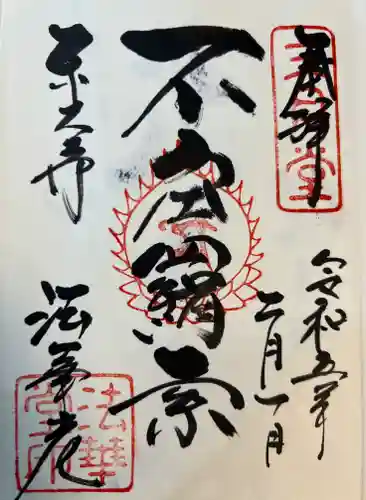 奉拝
令和五年
二月一日
不空羂索
東大寺
法華堂
法華